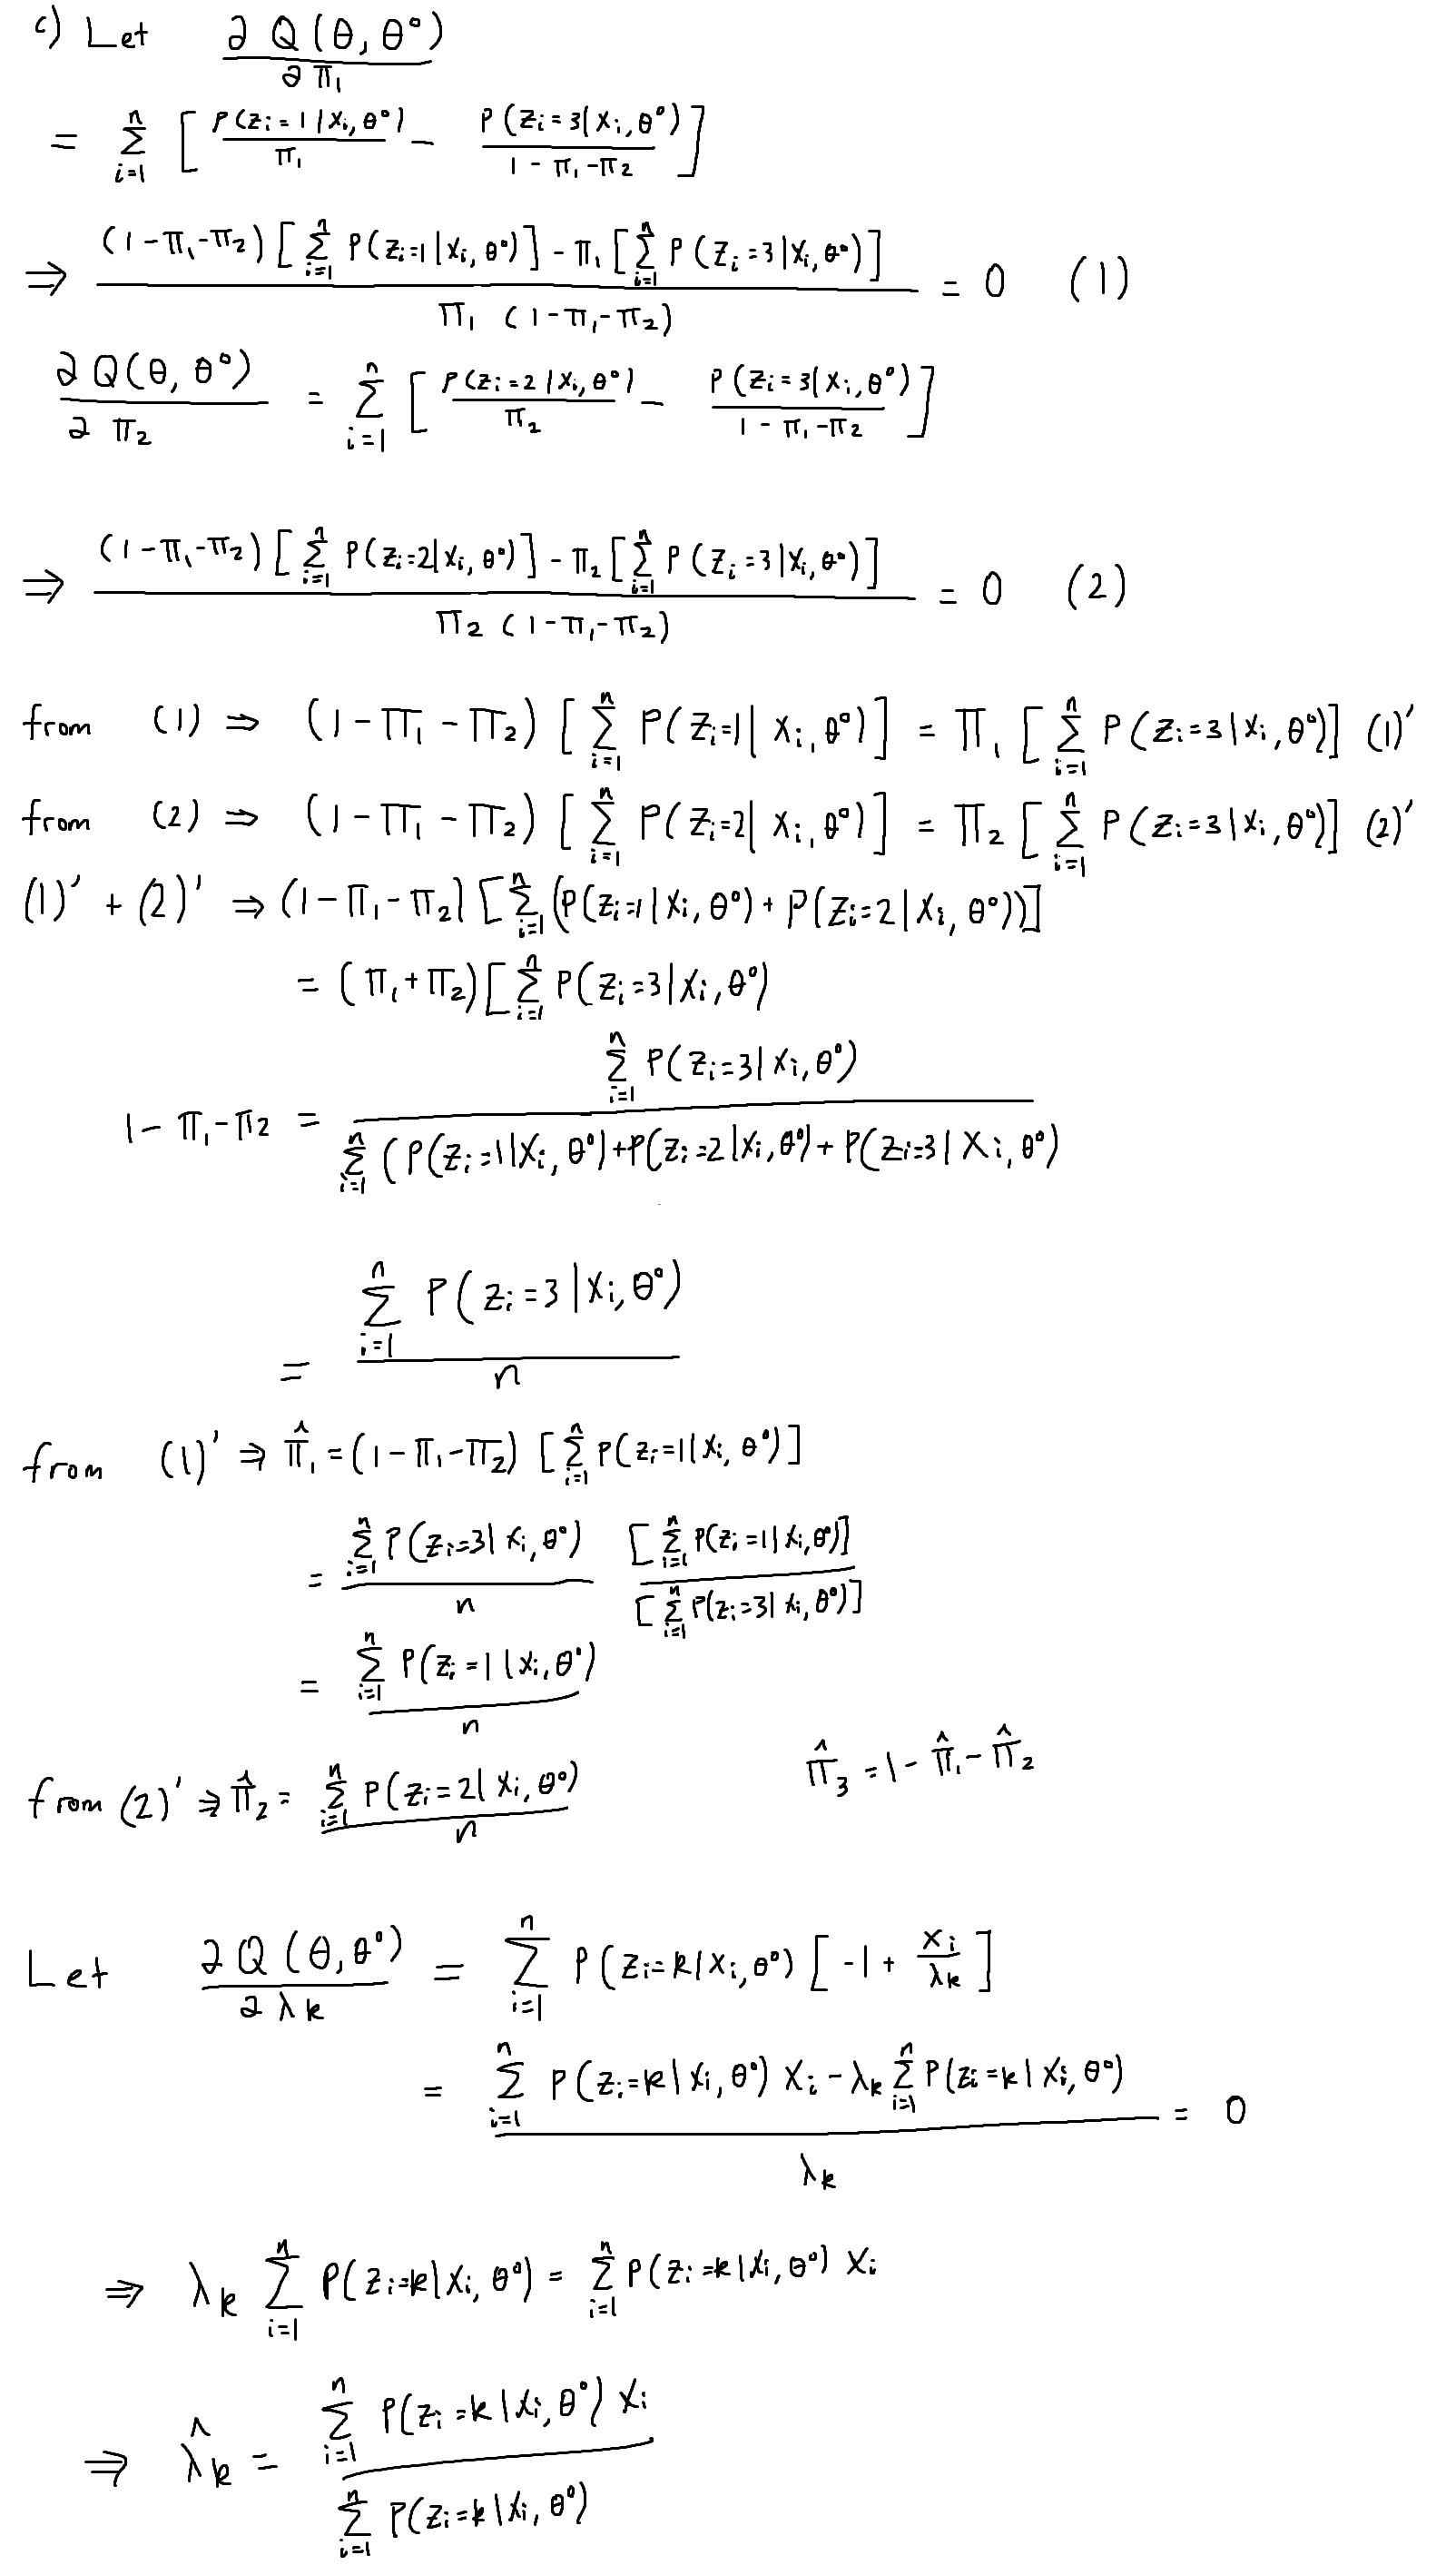 c) Let ∂Q(θ, θ⁰) / ∂π₁
= Σ_{i=1}^{n} [ P(zᵢ=1|xᵢ, θ⁰) / π₁ − P(zᵢ=3|xᵢ, θ⁰) / (1−π₁−π₂) ]
⇒ (1−π₁−π₂)[Σ_{i=1}^{n} P(zᵢ=1|xᵢ, θ⁰)] − π₁[Σ_{i=1}^{n} P(zᵢ=3|xᵢ, θ⁰)] / π₁(1−π₁−π₂) = 0 (1)
∂Q(θ, θ⁰) / ∂π₂ = Σ_{i=1}^{n} [ P(zᵢ=2|xᵢ, θ⁰) / π₂ − P(zᵢ=3|xᵢ, θ⁰) / (1−π₁−π₂) ]
⇒ (1−π₁−π₂)[Σ_{i=1}^{n} P(zᵢ=2|xᵢ, θ⁰)] − π₂[Σ_{i=1}^{n} P(zᵢ=3|xᵢ, θ⁰)] / π₂(1−π₁−π₂) = 0 (2)
from (1) ⇒ (1−π₁−π₂) [Σ_{i=1}^{n} P(zᵢ=1|xᵢ, θ⁰)] = π₁ [Σ_{i=1}^{n} P(zᵢ=3|xᵢ, θ⁰)] (1)'
from (2) ⇒ (1−π₁−π₂) [Σ_{i=1}^{n} P(zᵢ=2|xᵢ, θ⁰)] = π₂ [Σ_{i=1}^{n} P(zᵢ=3|xᵢ, θ⁰)] (2)'
(1)' + (2)' ⇒ (1−π₁−π₂) [Σ_{i=1}^{n} (P(zᵢ=1|xᵢ, θ⁰) + P(zᵢ=2|xᵢ, θ⁰))]
= (π₁+π₂)[Σ_{i=1}^{n} P(zᵢ=3|xᵢ, θ⁰)
1−π₁−π₂ = Σ_{i=1}^{n} P(zᵢ=3|xᵢ, θ⁰) / Σ_{i=1}^{n} (P(zᵢ=1|xᵢ, θ⁰)+P(zᵢ=2|xᵢ, θ⁰)+P(zᵢ=3|xᵢ, θ⁰)
= Σ_{i=1}^{n} P(zᵢ=3|xᵢ, θ⁰) / n
from (1)' ⇒ π̂₁ = (1−π₁−π₂) [Σ_{i=1}^{n} P(zᵢ=1|xᵢ, θ⁰)]
= Σ_{i=1}^{n} P(zᵢ=3|xᵢ, θ⁰) / n [Σ_{i=1}^{n} P(zᵢ=1|xᵢ, θ⁰)] / [Σ_{i=1}^{n} P(zᵢ=3|xᵢ, θ⁰)]
= Σ_{i=1}^{n} P(zᵢ=1|xᵢ, θ⁰) / n
from (2)' ⇒ π̂₂ = Σ_{i=1}^{n} P(zᵢ=2|xᵢ, θ⁰) / n π̂₃ = 1−π̂₁−π̂₂
Let ∂Q(θ, θ⁰) / ∂λₖ = Σ_{i=1}^{n} P(zᵢ=k|xᵢ, θ⁰) [−1 + xᵢ / λₖ]
= Σ_{i=1}^{n} P(zᵢ=k|xᵢ, θ⁰) xᵢ − λₖ Σ_{i=1}^{n} P(zᵢ=k|xᵢ, θ⁰) / λₖ = 0
⇒ λₖ Σ_{i=1}^{n} P(zᵢ=k|xᵢ, θ⁰) = Σ_{i=1}^{n} P(zᵢ=k|xᵢ, θ⁰) xᵢ
⇒ λ̂ₖ = Σ_{i=1}^{n} P(zᵢ=k|xᵢ, θ⁰) xᵢ / Σ_{i=1}^{n} P(zᵢ=k|xᵢ, θ⁰)